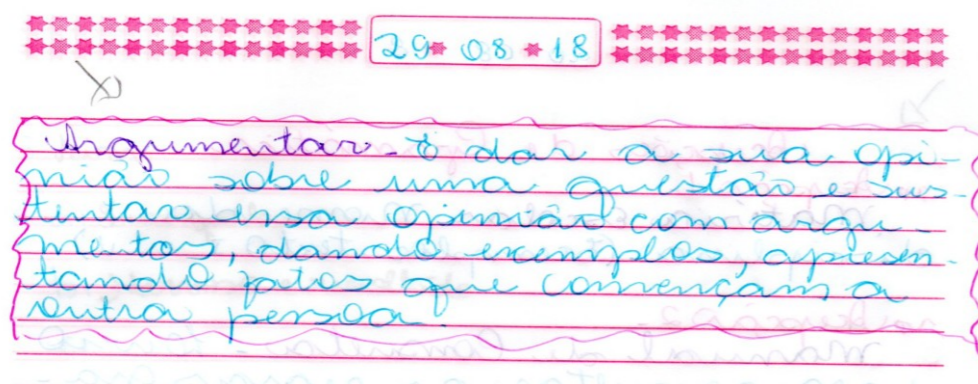 29 08 18
Argumentar - É dar a sua opi-
nião sobre uma questão e sus-
tentar essa opinião com argu-
mentos, dando exemplos, apresen-
tando fatos que convençam a
outra pessoa.